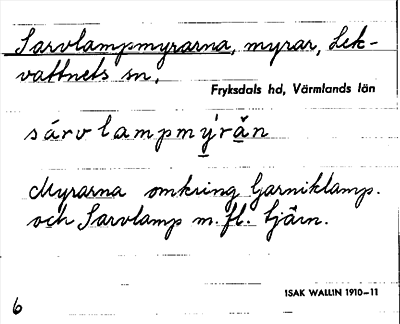 Sarvlampmyrarna, myrar, Lek-
vattnets sn,
Fryksdals hd, Värmlands län
särvlampmy̱ra̱n
Myrarna omkring Garniklamp.
och Sarvlamp m. fl. tjärn.
ISAK WALLIN 1910–11
6